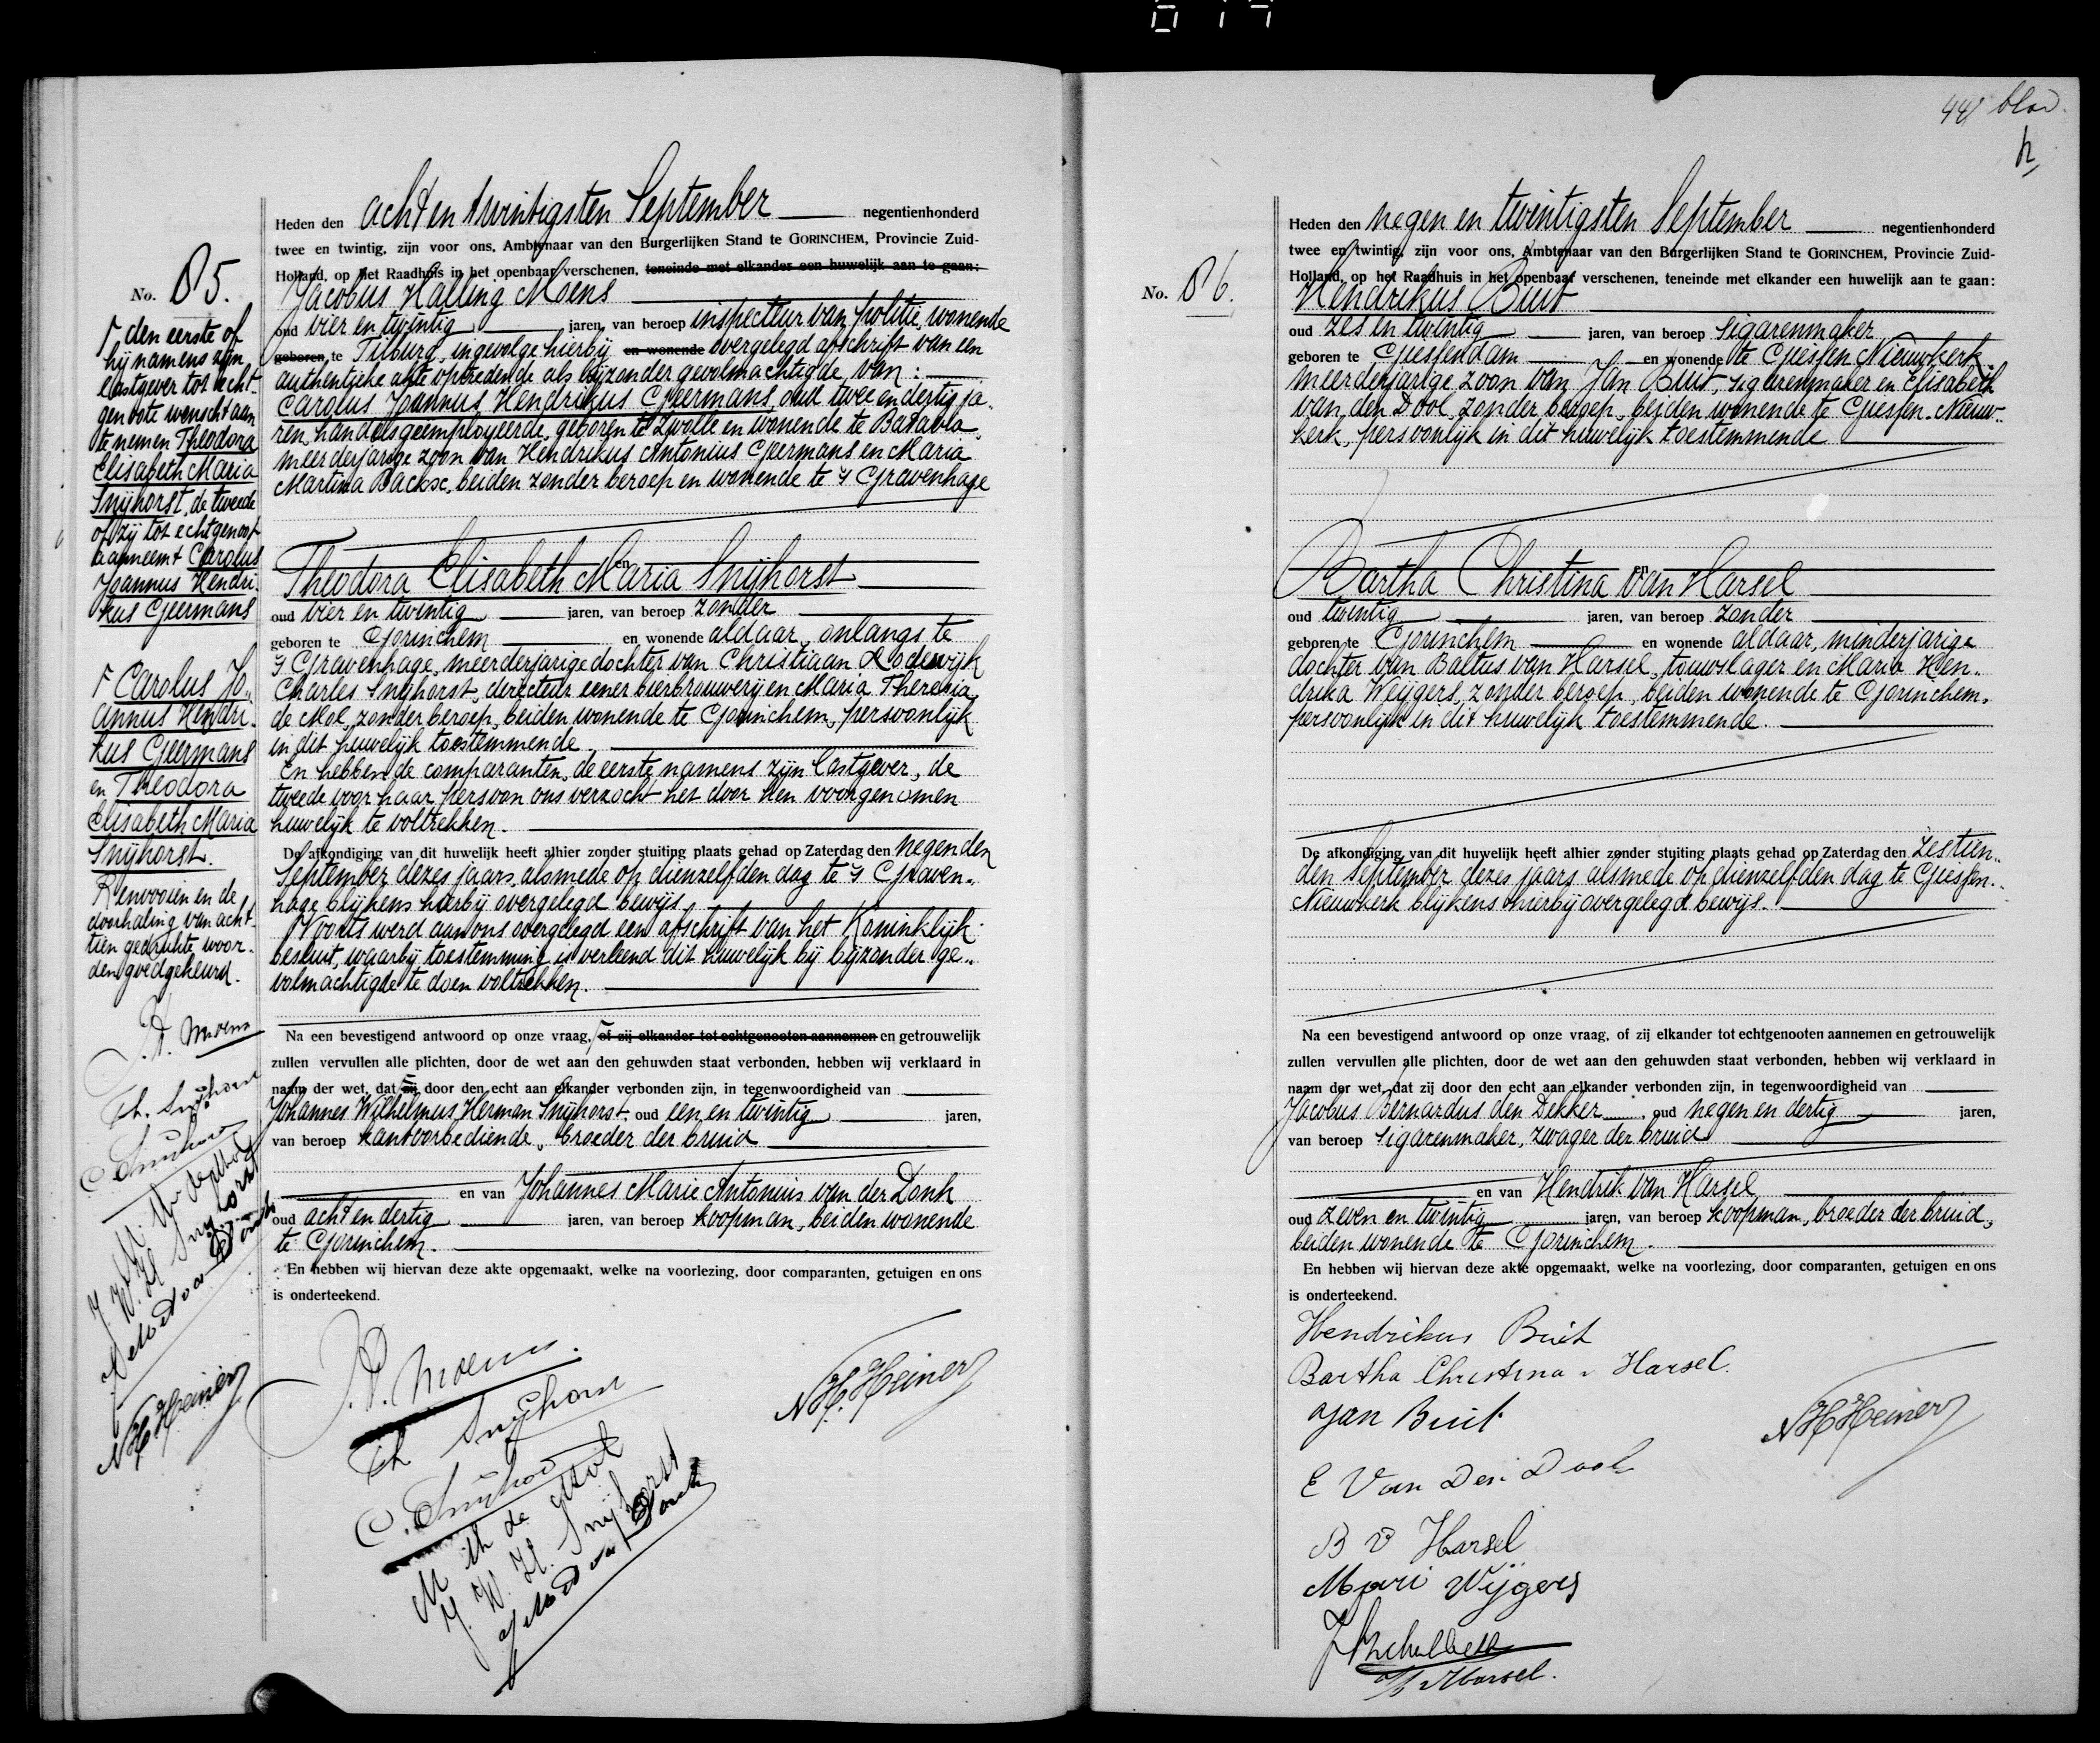 No. 85.
Heden den acht en twintigsten September negentienhonderd
twee en twintig, zijn voor ons, Ambtenaar van den Burgerlijken Stand te GORINCHEM, Provincie Zuid-
Holland, op het Raadhuis in het openbaar verschenen, teneinde met elkander een huwelijk aan te gaan:
Jacobus Halling Moens
oud vier en twintig jaren, van beroep inspecteur van politie, wonende
geboren te Tilburg, ingevolge hierbij en wonende overgelegd afschrift van een
authentieke akte optredende als bijzonder gevolmachtigde van:
Carolus Joannus Hendrikus Geermans, oud twee en dertig ja-
ren, handelsgeëmployeerde, geboren te Zwolle en wonende te Batavia,
meerderjarige zoon van Hendrikus Antonius Geermans en Maria
Martina Backx, beiden zonder beroep en wonende te 's Gravenhage
en
Theodora Elisabeth Maria Snijhorst
oud vier en twintig jaren, van beroep zonder
geboren te Gorinchem en wonende aldaar, onlangs te
's Gravenhage, meerderjarige dochter van Christiaan Lodewijk
Charles Snijhorst, directeur eener bierbrouwerij en Maria Theresia
de Mol, zonder beroep, beiden wonende te Gorinchem, persoonlijk
in dit huwelijk toestemmende.
En hebben de comparanten, de eerste namens zijn lastgever, de
tweede voor haar persoon ons verzocht het door hen voorgenomen
huwelijk te voltrekken.
De afkondiging van dit huwelijk heeft alhier zonder stuiting plaats gehad op Zaterdag den negenden
September dezes jaars, alsmede op dienzelfden dag te 's Graven-
hage blijkens hierbij overgelegd bewijs.
Voorts werd aan ons overgelegd een afschrift van het Koninklijk
besluit, waarbij toestemming is verleend dit huwelijk bij bijzonder ge-
volmachtigde te doen voltrekken.
Na een bevestigend antwoord op onze vraag, of zij elkander tot echtgenooten aannemen en getrouwelijk
zullen vervullen alle plichten, door de wet aan den gehuwden staat verbonden, hebben wij verklaard in
naam der wet, dat zij door den echt aan elkander verbonden zijn, in tegenwoordigheid van
Johannes Wilhelmus Herman Snijhorst, oud een en twintig jaren,
van beroep kantoorbediende, broeder der bruid
en van Johannes Marie Antonius van der Donk
oud acht en dertig jaren, van beroep koopman, beiden wonende
te Gorinchem.
En hebben wij hiervan deze akte opgemaakt, welke na voorlezing, door comparanten, getuigen en ons
is onderteekend.
J.H. Moens.
Th Snijhorst
C. Snijhorst
M Th de Mol
J. W. H. Snijhorst
J M A v d Donk
N H Heiner
den eerste of
hij namens zijn
lastgever tot echt-
genoote wenscht aan
te nemen Theodora
Elisabeth Maria
Snijhorst, de tweede
of zij tot echtgenoot
aanneemt Carolus
Joannus Hendri-
kus Geermans
Carolus Jo-
annus Hendri-
kus Geermans
en Theodora
Elisabeth Maria
Snijhorst.
Renvooien en de
doorhaling van acht-
tien gedrukte woor-
den goedgekeurd.
J.H. Moens
Th. Snijhorst
C Snijhorst
M. Th de Mol
J. W. H Snijhorst
J M A v d Donk
N H Heiner
44 blad.
h
No. 86.
Heden den negen en twintigsten September negentienhonderd
twee en twintig, zijn voor ons, Ambtenaar van den Burgerlijken Stand te GORINCHEM, Provincie Zuid-
Holland, op het Raadhuis in het openbaar verschenen, teneinde met elkander een huwelijk aan te gaan:
Hendrikus Buit
oud zes en twintig jaren, van beroep sigarenmaker
geboren te Giessendam en wonende te Giessen Nieuwkerk,
meerderjarige zoon van Jan Buit, sigarenmaker en Elisabeth
van den Dool, zonder beroep, beiden wonende te Giessen-Nieuw-
kerk, persoonlijk in dit huwelijk toestemmende
en
Bartha Christina van Harsel
oud twintig jaren, van beroep zonder
geboren te Gorinchem en wonende aldaar, minderjarige
dochter van Baltus van Harsel, touwslager en Maria Hen-
drika Weijgers, zonder beroep, beiden wonende te Gorinchem,
persoonlijk in dit huwelijk toestemmende.
De afkondiging van dit huwelijk heeft alhier zonder stuiting plaats gehad op Zaterdag den zestien-
den September dezes jaars alsmede op dienzelfden dag te Giessen-
Nieuwkerk blijkens hierbij overgelegd bewijs.
Na een bevestigend antwoord op onze vraag, of zij elkander tot echtgenooten aannemen en getrouwelijk
zullen vervullen alle plichten, door de wet aan den gehuwden staat verbonden, hebben wij verklaard in
naam der wet, dat zij door den echt aan elkander verbonden zijn, in tegenwoordigheid van
Jacobus Bernardus den Dekker, oud negen en dertig jaren,
van beroep sigarenmaker, zwager der bruid
en van Hendrik van Harsel
oud zeven en twintig jaren, van beroep koopman, broeder der bruid,
beiden wonende te Gorinchem.
En hebben wij hiervan deze akte opgemaakt, welke na voorlezing, door comparanten, getuigen en ons
is onderteekend.
Hendrikus Buit
Bartha Christina v Harsel.
Jan Buit
E Van Den Dool
B V Harsel
Mari Wijgers
H v Harsel.
N H Heiner